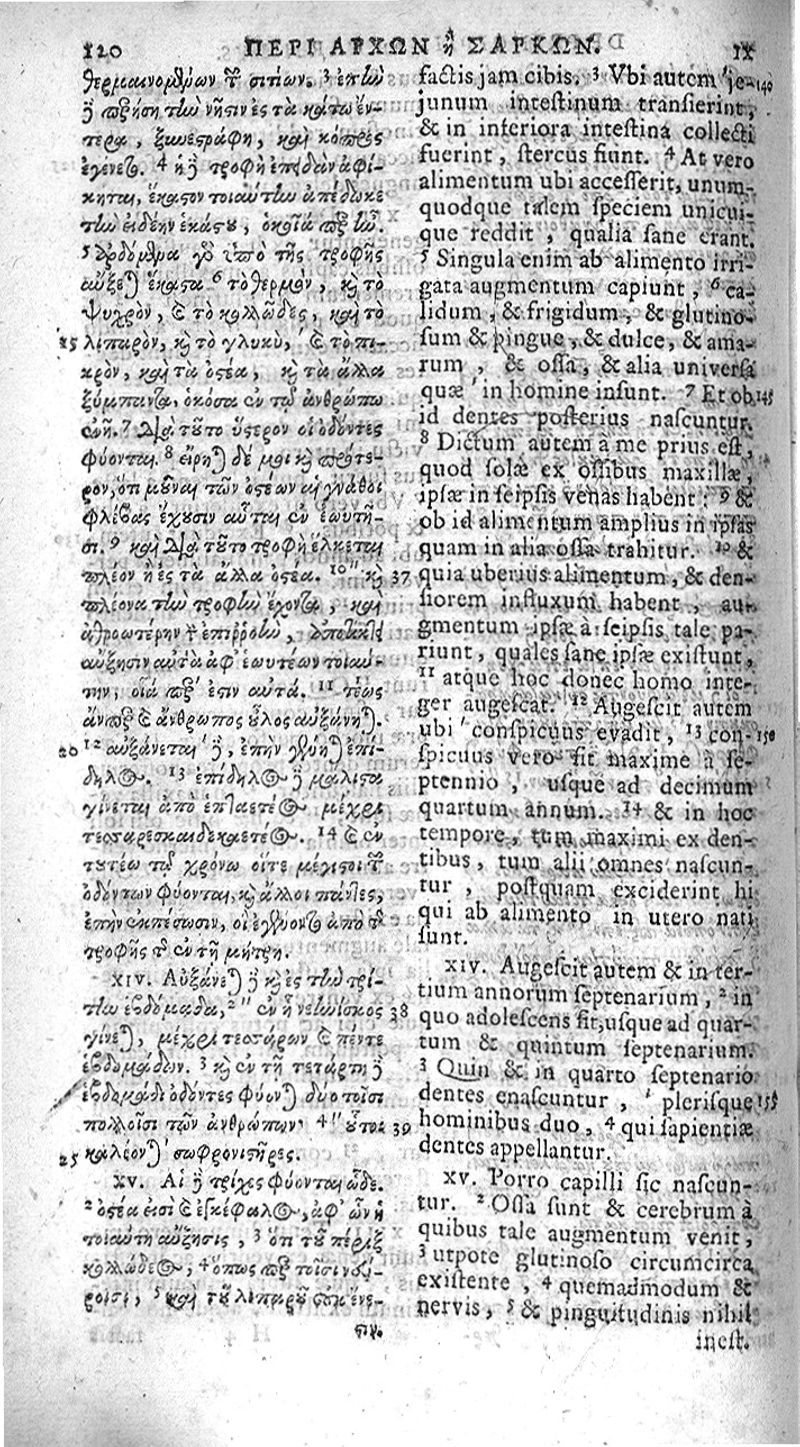 120 ΠΕΡΙ ΑΡΧΩΝ ἢ ΣΑΡΚΩΝ. IX
θερμαινομένων τῶν σιτίων. 3 ἐπὴν
δὲ περήσῃ τὴν νῆστιν ἐς τὰ κάτω ἔν-
τερα, ξυνεστράφη, καὶ κόπρος
ἐγένετο. 4 ἡ δὲ τροφὴ ἐπειδὰν ἀφί-
κηται, ἕκαστον τοιαύτην ἀπέδωκε
τὴν εἰδέην ἑκάστου, ὁκοῖά περ ἦν.
5 ἀρδόμενα γὰρ ὑπὸ τῆς τροφῆς
αὔξεται ἕκαστα 6 τὸ θερμὸν, καὶ τὸ
ψυχρὸν, καὶ τὸ κολλῶδες, καὶ τὸ
15 λιπαρὸν, καὶ τὸ γλυκὺ, καὶ τὸ πι-
κρὸν, καὶ τὰ ὀστέα, καὶ τὰ ἄλλα
ξύμπαντα, ὁκόσα ἐν τῷ ἀνθρώπῳ
ἐνῇ. 7 Διὰ τοῦτο ὕστερον οἱ ὀδόντες
φύονται. 8 εἴρηται δέ μοι καὶ πρότε-
ρον, ὅτι μοῦναι τῶν ὀστέων αἱ γνάθοι
φλέβας ἔχουσιν αὗται ἐν ἑωυτῇ-
σι. 9 καὶ Διὰ τοῦτο τροφὴ ἕλκεται
πλέον ἢ ἐς τὰ ἄλλα ὀστέα. 10 " καὶ 37
πλέονα τὴν τροφὴν ἔχοντα, καὶ
ἀθροωτέρην τὴν ἐπιρροὴν, ἀποτίκτει
αὔξησιν αὐτὰ ἀφ' ἑωυτέων τοιαύ-
την, οἷά περ ἐστιν αὐτά. 11 τέως
ἄνπερ καὶ ἄνθρωπος οὖλος αὐξάνηται.
20 12 αὐξάνεται δὲ, ἐπὴν γένηται ἐπί-
δηλος. 13 ἐπίδηλος δὲ μάλιστα
γίνεται ἀπὸ ἑπταετέος μέχρι
τεσσαρεσκαιδεκαετέος. 14 καὶ ἐν
τουτέῳ τῷ χρόνῳ οἵτε μέγιστοι τῶν
ὀδόντων φύονται, καὶ ἄλλοι πάντες,
ἐπὴν ἐκπέσωσιν, οἳ ἐγένοντο ἀπὸ τῆς
τροφῆς τῆς ἐν τῇ μήτρῃ.
XIV. Αὐξάνεται δὲ καὶ ἐς τὴν τρί-
την ἑβδομάδα, 2 " ἐν ᾗ νεηνίσκος 38
γίνεται, μέχρι τεσσάρων καὶ πέντε
ἑβδομάδων. 3 καὶ ἐν τῇ τετάρτῃ δὲ
ἑβδομάδι ὀδόντες φύονται δύο τοῖσι
πολλοῖσι τῶν ἀνθρώπων· 4 " οὗτοι 39
25 καλέονται σωφρονιστῆρες.
XV. Αἱ δὲ τρίχες φύονται ὧδε.
2 ὀστέα εἰσὶ καὶ ἐγκέφαλος, ἀφ' ὧν ἡ
τοιαύτη αὔξησις, 3 ὅτι τοῦ πέριξ
κολλώδεος, 4 ὅπως περ τοῖσι νεύ-
ροισι, 5 καὶ τοῦ λιπαροῦ οὐκ ἔνε-
στι.
factis jam cibis. 3 Vbi autem je- 140
junum intestinum transierint,
& in inferiora intestina collecti
fuerint, stercus fiunt. 4 At vero
alimentum ubi accesserit, unum-
quodque talem speciem unicui-
que reddit, qualia sane erant.
5 Singula enim ab alimento irri-
gata augmentum capiunt, 6 ca-
lidum, & frigidum, & glutino-
sum & pingue, & dulce, & ama-
rum, & ossa, & alia universa
quæ in homine insunt. 7 Et ob 145
id dentes posterius nascuntur.
8 Dictum autem à me prius est,
quod solæ ex ossibus maxillæ,
ipsæ in seipsis venas habent: 9 &
ob id alimentum amplius in ipsas
quam in alia ossa trahitur. 10 &
quia uberius alimentum, & den-
siorem influxum habent, au-
gmentum ipsæ à seipsis tale pa-
riunt, quales sane ipsæ existunt,
11 atque hoc donec homo inte-
ger augescat. 12 Augescit autem
ubi conspicuus evadit, 13 con- 150
spicuus vero fit maxime à se-
ptennio, usque ad decimum
quartum annum. 14 & in hoc
tempore, tum maximi ex den-
tibus, tum alii omnes nascun-
tur, postquam exciderint hi
qui ab alimento in utero nati
sunt.
XIV. Augescit autem & in ter-
tium annorum septenarium, 2 in
quo adolescens fit, usque ad quar-
tum & quintum septenarium.
3 Quin & in quarto septenario
dentes enascuntur, plerisque 155
hominibus duo, 4 qui sapientiæ
dentes appellantur.
XV. Porro capilli sic nascun-
tur. 2 Ossa sunt & cerebrum à
quibus tale augmentum venit,
3 utpote glutinoso circumcirca
existente, 4 quemadmodum &
nervis, 5 & pinguitudinis nihil
inest.